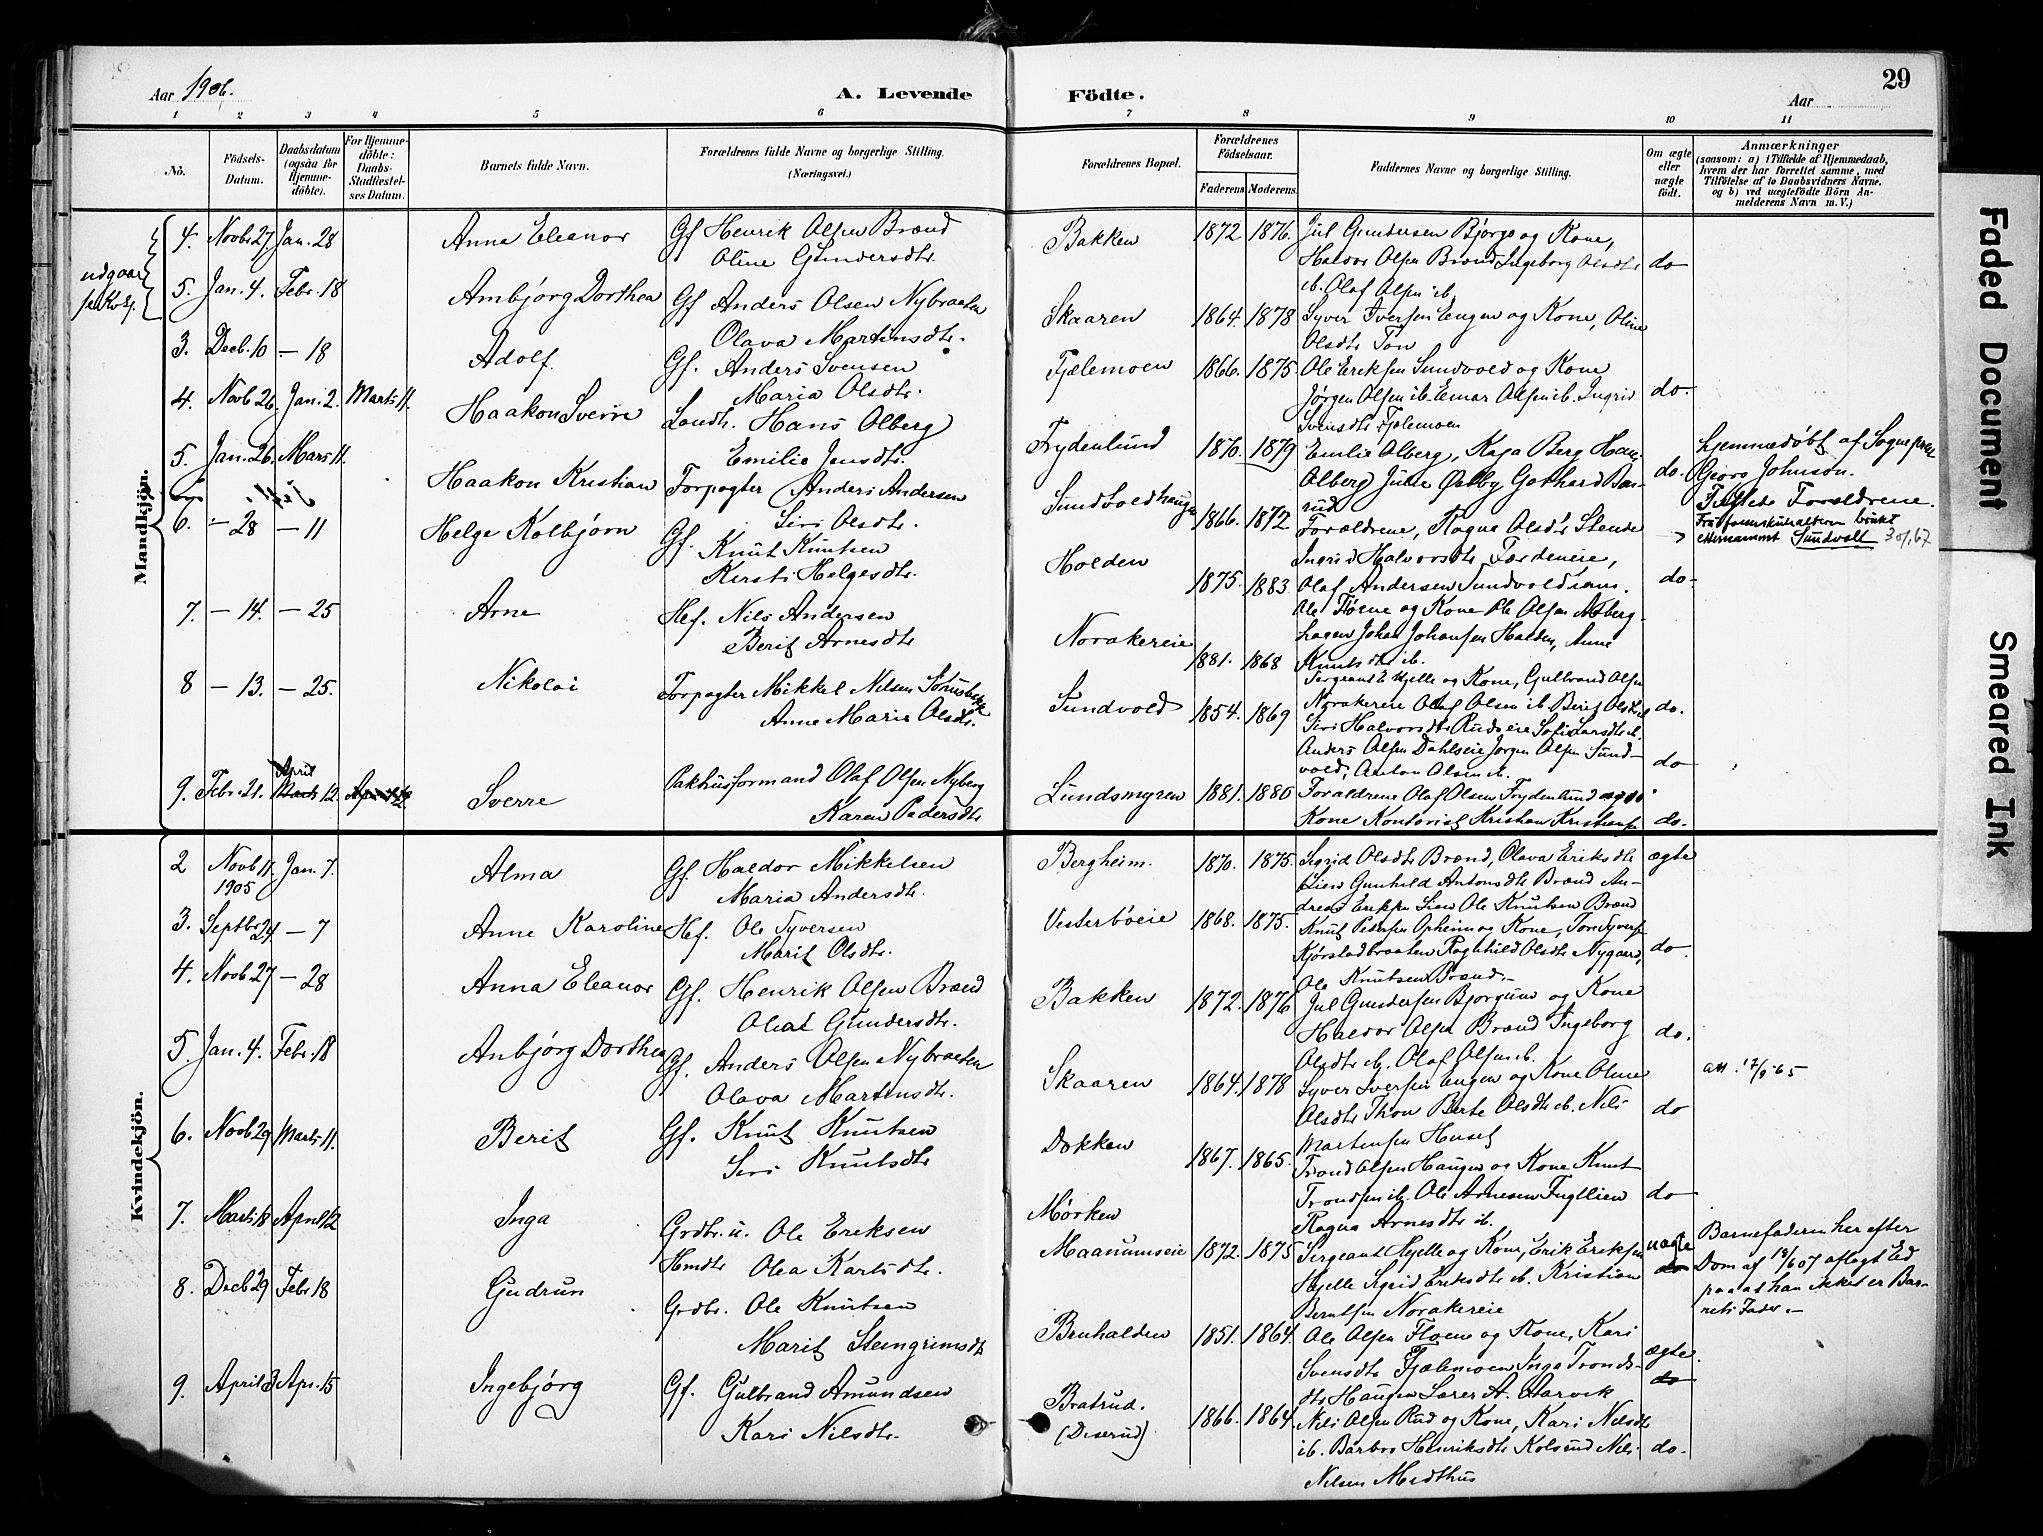 29
Aar 1906.
A. Levende Födte.
Aar
1 2 3 4 5 6 7 8 9 10 11
No.
Födsels-Datum.
Daabsdatum (ogsaa for Hjemme-döbte).
For Hjemme-döbte: Daabs-Stadfæstel-ses Datum.
Barnets fulde Navn.
Forældrenes fulde Navne og borgerlige Stilling.
(Næringsvei.)
Forældrenes Bopæl.
Forældrenes Födselsaar.
Faderens Moderens.
Faddernes Navne og borgerlige Stilling.
Om ægte eller uægte födt.
Anmærkninger
(saasom: a) i Tilfælde af Hjemmedaab,
hvem der har forrettet samme, med
Tilföielse af to Daabsvidners Navne,
og b) ved uægtefödte Börn An-
melderens Navn m. V.)
Mandkjön.
udgaar
4. Novb. 27 Jan. 28 Anna Eleanor Gf Henrik Olsen Brænd Bakken 1872 1876. Jul Gundersen Bjørge og Kone,
Oline Gundersdtr. Halvor Olsen Brænd Ingeborg Olsdtr do
ib. Olaf Olsen ib.
5. Jan. 4. Febr. 18 Ambjørg Dorthea Gf Anders Olsen Nybraaten Skaaren 1864. 1878 Syver Iversen Engen og Kone, Oline
Olava Martinsdtr. Olsdtr Ton
3. Decb. 10 — 18 Adolf. Gf. Anders Svensen Fjælemoen 1866. 1875 Ole Eriksen Sundvold og Kone
Maria Olsdtr. Jørgen Olsen ib. Einar Olsen ib. Ingrid do.
Svensdtr Fjælemoen
4. Novb. 26. Jan. 2. Marts 11. Haakon Sverre Landh. Hans Olberg Frydenlund 1870. 1879 Emilie Olberg, Kaja Berg Hans hjemmedøbt af Sognepræst
Emilie Jensdtr. Olberg Gothard do. Georg Johnson.
5. Jan. 26. Marts 11. Haakon Kristian Forpagter Anders Andersen Sundvoldhaugen 1866. 1872 Forældrene, Ragna Olsdtr Stende Fadder Forældrene.
Siri Olsdtr. Ingrid Halvorsdtr ettersnamnet Sundvolt
6. — 28 — 11 Helge Kolbjørn Gf. Knut Knutsen Holden 1875. 1883 Olaf Andersen do.
Kersti Helgesdtr.
7. — 14. — 25 Arne Hef. Nils Andersen Norakereie 1881. 1868 Knutsdtr ib.
Berit Arnesdtr
8 — 13. — 25. Nikolai Forpagter Mikkel Nilsen Sundvold 1854. 1869 Sergeant E Hjelle og Kone, Gulbrand Olsen
Anne Marie Olsdtr. Norakereie Olaf Olsen ib Berit Olsdtr do.
Siri Halvorsdtr Rudseie Sofie Larsdtr ib.
Anders Olsen Dahlseie Jørgen Olsen Sund-
vold, Anton Olsen ib. do
9. Febr. 21. April 12. Sverre Pakhusformand Olaf Olsen Nyberg Lundsmyren 1881. 1886 Forældrene Olaf Olsen Frydenlund og
Karen Pedersdtr Kone Kontorist Kristian Kristiansen do.
Kvindekjön.
2 Novb. 11. 1905 Jan. 7. Alma Gf. Haldor Mikkelsen Bergheim. 1870. 1875. Sigrid Olsdtr Brænd, Olava Eriksdtr ægte
Maria Andersdtr. Lien Gunhild Antonsdtr Brænd An-
dreas Eriksen Lien Ole Knutsen Brænd
3. Septbr. 24 — 7 Anne Karoline Hef. Ole Syversen Vesterbøeie 1868. 1875. Knut Pedersen Opheim og Kone, Tore Syversen
Marit Olsdtr. Kjørstadbraaten Raghnild Olsdtr Nygaard, do.
Ole Knutsen Brænd.
4. Novb. 27 — 28 Anna Eleanor Gf. Henrik Olsen Brænd Bakken 1872. 1876 Jul Gundersen Bjørgum og Kone
Gundersdtr. Haldor Olsen Brænd Ingeborg do.
Olsdtr ib. Olaf Olsen ib.
5. Jan. 4. Febr. 18 Anbjørg Dorthea Gf. Anders Olsen Nybraaten Skaaren 1864. 1878 Syver Iversen Engen og Kone Oline att. 17/9-65
Olava Martinsdtr. Olsdtr Thon Berte Olsdtr ib. Nils do
Martinsen Huset
6. Novb 29 Marts 11. Berit Gf. Knut Knutsen Dokken 1867. 1865. Trond Olsen Haugen og Kone Knut
Siri Knutsdtr Trondsen ib. Ole Arnesen Fugllien do
Ragna Arnesdtr ib.
7. Marts 18 April 12 Inga Grdbr. u. Ole Eriksen Mørken
Hmdtr Olea Karlsdtr. Maanumseie 1872. 1875 Sergeant Hjelle og Kone, Erik Eriksen uægte Barnefaderen her efter
Hjelle Sigrid Eriksdtr ib. Kristian do Dom af 18/6 07 aflagt Ed
Berntsen Norakereie paa at han ikke er Bar-
nets Fader.
8. Decb 29 Febr 18 Gudrun Grdbr. Ole Knutsen Bruhalden 1851. 1864. Ole Olsen Floene og Kone, Kari
Marit Steingrimsdtr Svensdtr Fjælemoen Inga Tronds- ægte.
dtr Haugen Lærer A. Aarvik do
9. April 3 Apr. 15 Ingebjørg Gf. Gulbrand Amundsen Bratrud. 1866. 1864. Nils Olsen Rud og Kone, Kari Nilsdtr
Kari Nilsdtr. (Diserud) ib. Barbro Henriksdtr Kolsrud Nils do.
Nilsen Medthus
Faded Document
Smeared Ink